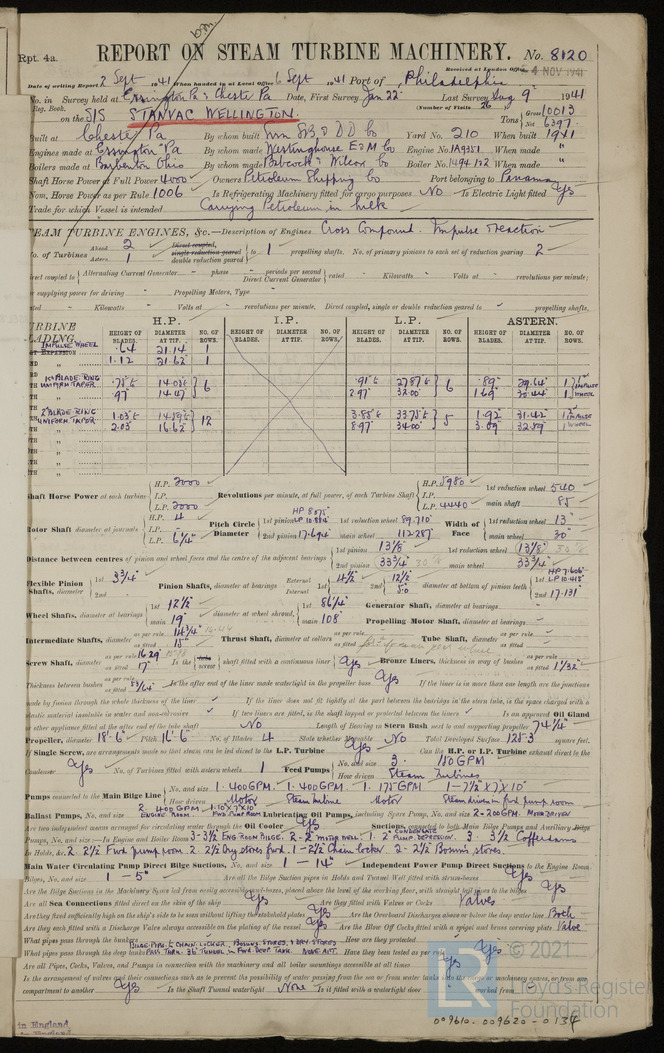 Rpt. 4a.
REPORT ON STEAM TURBINE MACHINERY. No. 8120
Received at London Office 4 NOV 1941
Date of writing Report 2 Sept 1941 When handed in at Local Office 6 Sept 1941 Port of Philadelphia
No. in Survey held at Essington Pa & Chester Pa Date, First Survey Jan 22 Last Survey Aug 9 1941
Reg. Book. (Number of Visits 26
on the S/S STANVAC WELLINGTON. Tons Gross 10013 Net 6397
Built at Chester Pa By whom built Sun SB & DD Co Yard No. 210 When built 1941
Engines made at Essington Pa By whom made Westinghouse E & M Co Engine No. 1A9351 When made "
Boilers made at Barberton Ohio By whom made Babcock & Wilcox Co Boiler No. When made "
Shaft Horse Power at Full Power 4000 Owners Petroleum Shipping Co Port belonging to Panama
Nom. Horse Power as per Rule 1006 Is Refrigerating Machinery fitted for cargo purposes No Is Electric Light fitted Yes
Trade for which Vessel is intended Carrying Petroleum in bulk
STEAM TURBINE ENGINES, &c.—Description of Engines Cross Compound. Impulse & reaction
No. of Turbines Ahead 2 Astern 1 Direct coupled, single reduction geared double reduction geared to 1 propelling shafts. No. of primary pinions to each set of reduction gearing 2
direct coupled to Alternating Current Generator phase periods per second Direct Current Generator rated Kilowatts Volts at revolutions per minute;
for supplying power for driving Propelling Motors, Type
rated Kilowatts Volts at revolutions per minute. Direct coupled, single or double reduction geared to propelling shafts.
TURBINE BLADING. H.P. I.P. L.P. ASTERN.
HEIGHT OF BLADES. DIAMETER AT TIP. NO. OF ROWS. HEIGHT OF BLADES. DIAMETER AT TIP. NO. OF ROWS. HEIGHT OF BLADES. DIAMETER AT TIP. NO. OF ROWS. HEIGHT OF BLADES. DIAMETER AT TIP. NO. OF ROWS.
IMPULSE WHEEL .64 21.14 1
1.12 21.62 1
1st BLADE RING .75" to 14.03" to 6 .91" to 27.87" to 6 .89" 29.64" 1 IMPULSE
UNIFORM TAPER .97" 14.47" 2.97" 32.00" 1.69" 30.44" 1 WHEEL
2nd BLADE RING 1.03" to 14.59" to 12 3.85" to 33.75" to 5 1.92" 31.42" 1 IMPULSE
UNIFORM TAPER 2.03" 16.62" 8.97" 34.00" 3.09" 32.59" 1 WHEEL
Shaft Horse Power at each turbine H.P. 2000 I.P. L.P. 2000 Revolutions per minute, at full power, of each Turbine Shaft H.P. 5980 I.P. L.P. 4440 1st reduction wheel 540 main shaft 85
Rotor Shaft diameter at journals H.P. 4 I.P. L.P. 6 1/4" Pitch Circle Diameter 1st pinion HP 8.075" LP 10.884" 2nd pinion 17.694" 1st reduction wheel 89.710" main wheel 112.287" Width of Face 1st reduction wheel 13" main wheel 30"
Distance between centres of pinion and wheel faces and the centre of the adjacent bearings 1st pinion 13 1/8" 2nd pinion 33 3/4" 1st reduction wheel 13 1/8" main wheel 33 3/4"
Flexible Pinion Shafts, diameter 1st 3 3/4" 2nd Pinion Shafts, diameter at bearings External 1st 4 1/2" 2nd 12 1/2" Internal 5.0 diameter at bottom of pinion teeth 1st HP 7.606" LP 10.415" 2nd 17.131"
Wheel Shafts, diameter at bearings 1st 12 1/2" main 19" diameter at wheel shroud, 1st 86 1/4" main 108" Generator Shaft, diameter at bearings Propelling Motor Shaft, diameter at bearings
Intermediate Shafts, diameter as per rule 14 3/4" as fitted 15" Thrust Shaft, diameter at collars as per rule as fitted Tube Shaft, diameter as per rule as fitted
Screw Shaft, diameter as per rule 16.29 as fitted 17" Is the tube screw shaft fitted with a continuous liner Yes Bronze Liners, thickness in way of bushes as per rule as fitted 1 1/32"
Thickness between bushes as per rule as fitted 53/64" Is the after end of the liner made watertight in the propeller boss Yes If the liner is in more than one length are the junctions
made by fusion through the whole thickness of the liner If the liner does not fit tightly at the part between the bearings in the stern tube, is the space charged with a
plastic material insoluble in water and non-corrosive If two liners are fitted, is the shaft lapped or protected between the liners Is an approved Oil Gland
or other appliance fitted at the after end of the tube shaft No Length of Bearing in Stern Bush next to and supporting propeller 74 1/4"
Propeller, diameter 18'6" Pitch 16'6" No. of Blades 4 State whether Moveable No Total Developed Surface 128.3 square feet.
If Single Screw, are arrangements made so that steam can be led direct to the L.P. Turbine Yes Can the H.P. or I.P. Turbine exhaust direct to the
Condenser Yes No. of Turbines fitted with astern wheels 1 Feed Pumps No. and size 3. 180 GPM How driven Steam Turbines
Pumps connected to the Main Bilge Line No. and size 1. 400 GPM. 1. 400 GPM. 1. 175 GPM 1-7 1/2" x 7" x 10" How driven Motor Steam turbine Motor Steam driven in fwd pump room
Ballast Pumps, No. and size 2. 400 GPM ENGINE ROOM. 1. 10" x 7" x 10" FWD PUMP ROOM Lubricating Oil Pumps, including Spare Pump, No. and size 2-200 GPM. MOTOR DRIVEN
Are two independent means arranged for circulating water through the Oil Cooler Yes Suctions, connected to both Main Bilge Pumps and Auxiliary Bilge
Pumps, No. and size:—In Engine and Boiler Room 3-3 1/2 ENG ROOM BILGE. 2-2" MOTOR WELL. 1. 2" CONDENSATE PUMP DEPRESSION. 3. 3 1/2" Cofferdams
In Holds, &c. 2. 2 1/2" Fwd pump room. 2. 2 1/2" Dry stores fwd. 1-2 1/2" Chain locker 2-2 1/2" Bosun's stores.
Main Water Circulating Pump Direct Bilge Suctions, No. and size 1-14" Independent Power Pump Direct Suctions to the Engine Room
Bilges, No. and size 1-5" Are all the Bilge Suction pipes in Holds and Tunnel Well fitted with strum-boxes Yes
Are the Bilge Suctions in the Machinery Space led from easily accessible mud-boxes, placed above the level of the working floor, with straight tail pipes to the bilges Yes
Are all Sea Connections fitted direct on the skin of the ship Yes Are they fitted with Valves or Cocks Valves
Are they fixed sufficiently high on the ship's side to be seen without lifting the stokehold plates Yes Are the Overboard Discharges above or below the deep water line Both
Are they each fitted with a Discharge Valve always accessible on the plating of the vessel Yes Are the Blow Off Cocks fitted with a spigot and brass covering plate Valve
What pipes pass through the bunkers How are they protected
What pipes pass through the deep tanks BILGE PIPE to CHAIN LOCKER, BOSUNS STORES, & DRY STORES PASS THRU. 36" TUNNEL IN FWD DEEP TANK. Have they been tested as per rule Yes
Are all Pipes, Cocks, Valves, and Pumps in connection with the machinery and all boiler mountings accessible at all times Yes
Is the arrangement of valves and their connections such as to prevent the possibility of water passing from the sea or from water tanks into the cargo or machinery spaces, or from one
compartment to another Yes Is the Shaft Tunnel watertight None Is it fitted with a watertight door worked from
© 2021
LR
Lloyd's Register
Foundation
in England
009610-009620-0134